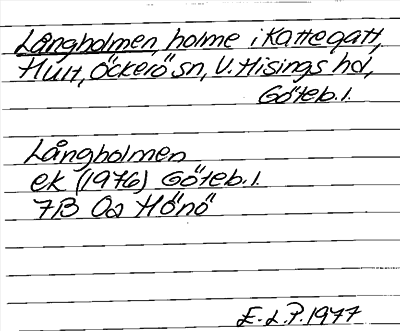 Långholmen, holme i Kattegatt,
Hult, Öckerö sn, V. Hisings hd,
Göteb. l.
Långholmen
ek (1976) Göteb. l.
7B 0a Hönö
E. L. P. 1977